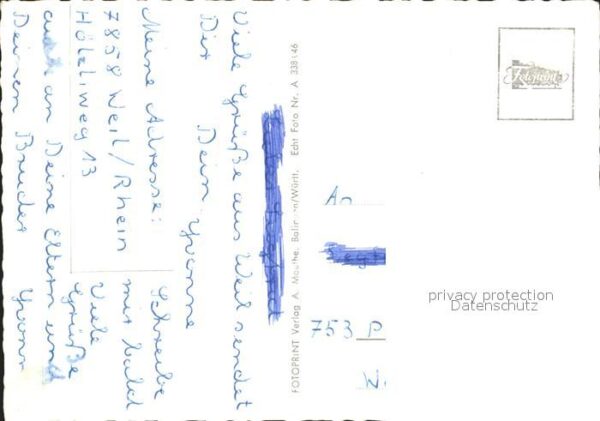 Viele Grüße aus Weil sendet
Dir Dein Yvonne
Meine Adresse:
7858 Weil/Rhein
Hölzliweg 13
Schreibe
mir bald
Viele
Grüße
auch an Deine Eltern und
Deinen Bruder Yvonn
FOTOPRINT Verlag A. Mauthe, Balingen/Württ. Echt Foto Nr. A 338146
Fotoprint
An
753 P
W
privacy protection
Datenschutz